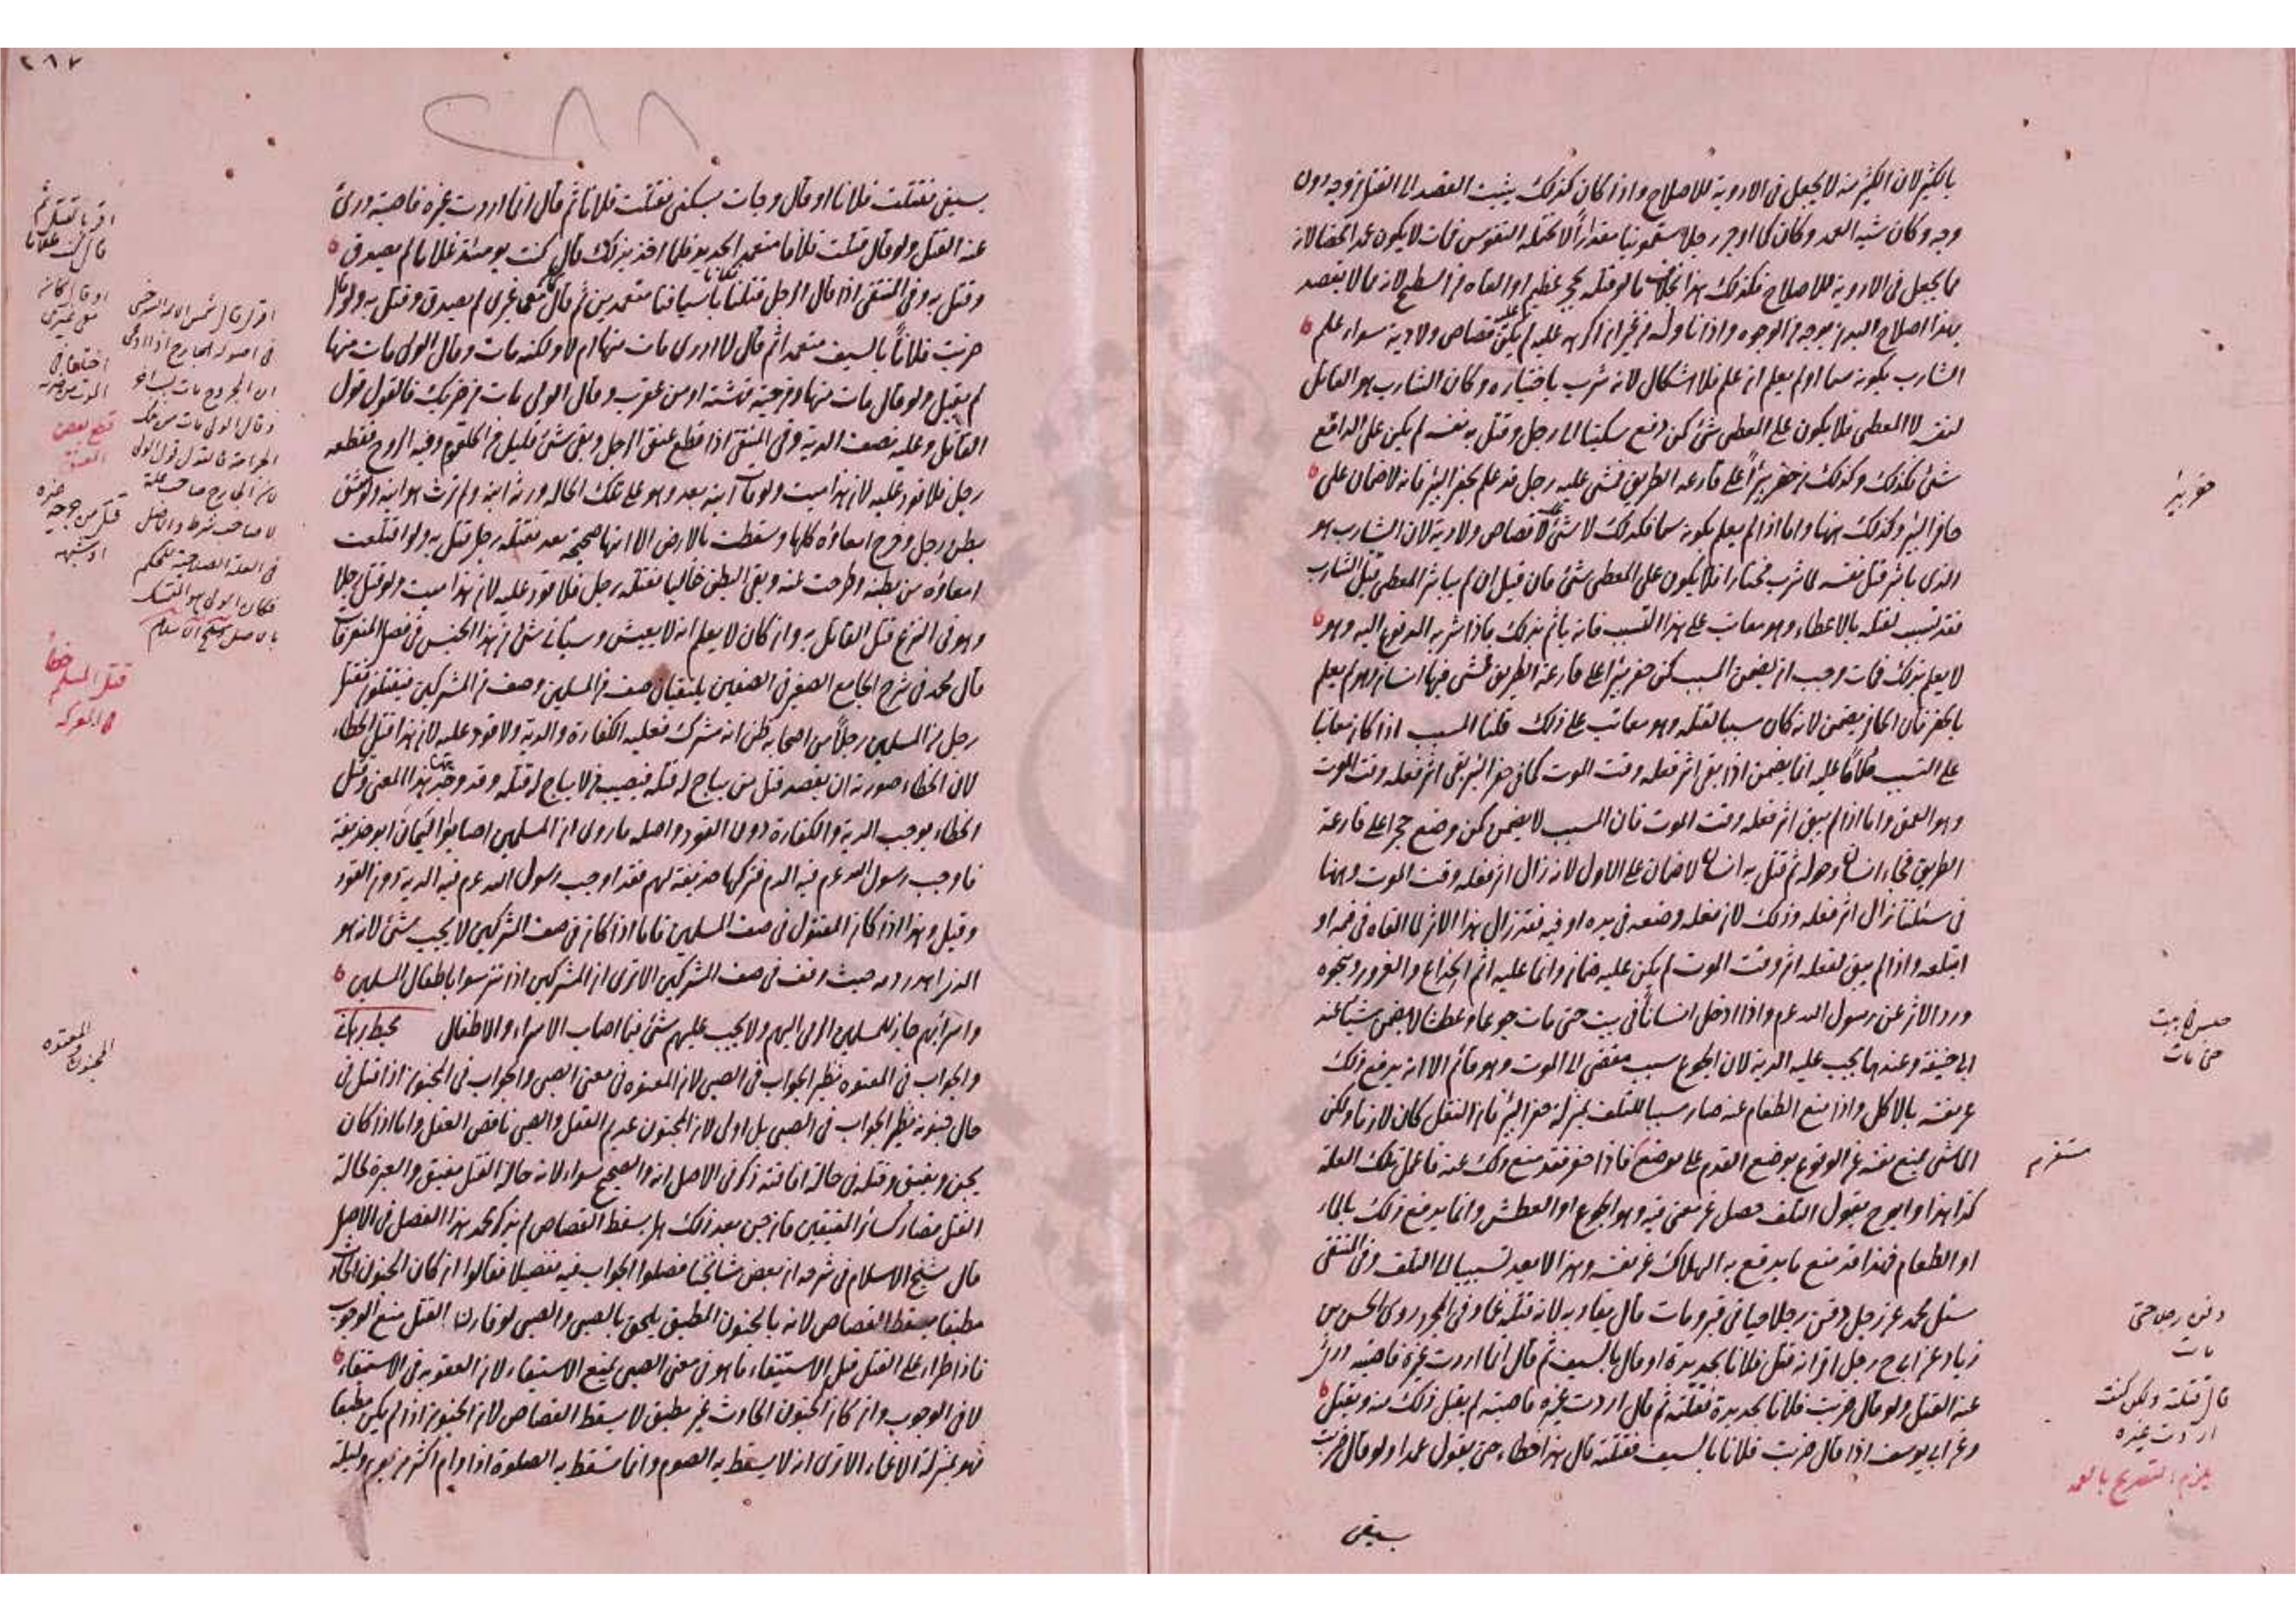 بالكثير لان الكثير منه لا يجعل في الادوية للاصلاح واذا كان كذلك يثبت القصد الى القتل من وجه دون
وجه وكان شبه العمد وكان كما اوجر رجلا سقمونيا مقدارا لا تحتمله النفوس فمات لا يكون عمدا محضا لانه
مما يجعل في الادوية للاصلاح فكذلك هذا بخلاف ما لو قتله بحجر عظيم او القاه من السطح لانه مما لا يقصد
بهذا اصلاح البدن بوجه من الوجوه واذا ناوله من غير ان اكرهه عليه لم يكن عليه قصاص ولا دية سواء علم
الشارب بكونه سما او لم يعلم ان علم فلا اشكال لانه شرب باختياره وكان الشارب هو القاتل
لنفسه لا المعطي فلا يكون على المعطي شئ كمن دفع سكينا الى رجل وقتل به نفسه لم يكن على الدافع
شئ فكذلك وكذلك من حفر بئرا على قارعة الطريق فمشى عليه رجل قد علم بحفر البئر فانه لا ضمان على
حافر البئر وكذلك ههنا واما اذا لم يعلم بكونه سما فكذلك لا شئ لا قصاص ولا دية لان الشارب هو
الذي باشر قتل نفسه لما شرب مختارا فلا يكون على المعطي شئ فان قيل ان لم يباشر المعطي قتل الشارب
فقد تسبب لقتله بالاعطاء وهو معاتب على هذا التسبب فانه ياثم بذلك فاذا شربه المدفوع اليه وهو
لا يعلم بذلك فمات وجب ان يضمن المسبب كمن حفر بئرا على قارعة الطريق فمشى فيها انسان وهو لم يعلم
بالحفر فان الحافر يضمن لانه كان سببا لقتله وهو معاتب على ذلك قلنا المسبب اذا كان معاتبا
على التسبب ملاما عليه انما يضمن اذا بقي اثر فعله وقت الموت كما في حفر البئر بقي اثر فعله وقت الموت
وهو العمق واما اذا لم يبق اثر فعله وقت الموت فان المسبب لا يضمن كمن وضع حجرا على قارعة
الطريق فجاء انسان وحوله ثم قتل به انسان لا ضمان على الاول لانه زال اثر فعله وقت الموت وههنا
في مسئلتنا زال اثر فعله وذلك لان فعله وضعه في يده او فيه فقد زال هذا الاثر لما القاه في فمه او
ابتلعه واذا لم يبق لفعله اثر وقت الموت لم يكن عليه ضمان وانما عليه اثم الخداع والغرور وبنحوه
ورد الاثر عن رسول الله عم واذا ادخل انسانا في بيت حتى مات جوعا او عطشا لا يضمن شيئا عند
ابي حنيفة وعندهما يجب عليه الدية لان الجوع سبب مفضي الى الموت وهو قائم الا انه يدفع ذلك
عن نفسه بالاكل واذا منع الطعام عنه صار سببا للتلف بمنزلة حفر البئر فان الثقل كان لازما ولكن
الماشي يمنع نفسه عن الوقوع بوضع القدم على موضع فاذا حفر فقد منع ذلك عنه فاعمل تلك العلة
كذا هذا وابو ح يقول التلف حصل عن معنى فيه وهو الجوع او العطش وانما يدفع ذلك بالماء
او الطعام فهذا قد منع ما يدفع به الهلاك عن نفسه وهذا لا يعد تسبيبا الى التلف وفي المنتقى
سئل محمد عن رجل دفن رجلا حيا في قبر ومات قال يقاد به لانه قتله غما وفي المجرد روى الحسن بن
زياد عن ابي ح رجل اقر انه قتل فلانا بحديدة او قال بالسيف ثم قال انما اردت غيره فاصبته درئ
عنه القتل ولو قال ضربت فلانا بحديدة فقتلته ثم قال اردت غيره فاصبته لم يقبل ذلك منه ويقتل
وعن ابي يوسف اذا قال ضربت فلانا بالسيف فقتلته قال هذا خطاء حتى يقول عمدا ولو قال ضربت
بسيفي
حفر بئر
حبس في بيت
حتى مات
دفن رجلا حتى
مات
قال قتلته ولكن كنت
اردت غيره
يلزم التصريح بالعمد
٢٨٧
٢٨٨
بسيفي فقتلت فلانا او قال وجأت بسكيني فقتلت فلانا ثم قال انما اردت غيره فاصبته درئ
عنه القتل ولو قال قتلت فلانا متعمدا بحديد فلما اخذ بذلك قال كنت يومئذ غلاما لم يصدق
وقتل به وفي المنتقى اذا قال الرجل قتلنا فلانا باسيافنا متعمدين ثم قال كان معي غيري لم يصدق وقتل به ولو قال
ضربت فلانا بالسيف متعمدا ثم قال لا ادري مات منها ام لا ولكنه مات وقال الولي مات منها
لم يقبل ولو قال مات منها ومن حية نهشته او من عقرب وقال الولي مات من ضربتك فالقول قول
القاتل وعليه نصف الدية وفي المنتقى اذا قطع عنق الرجل وبقي شئ قليل من الحلقوم وفيه الروح فقطعه
رجل فلا قود عليه لان هذا ميت ولو مات ابنه بعد وهو على تلك الحالة ورثه ابنه ولم يرث هو ابنه ولو شق
بطن رجل وخرج امعاؤه كلها وسقطت بالارض الا انها صحيحة بعد فقتله رجل قتل به ولو اقتلعت
امعاؤه من بطنه وطرحت عنه وبقي البطن خاليا فقتله رجل فلا قود عليه لان هذا ميت ولو قتل رجلا
وهو في النزع قتل القاتل به وان كان لا يعلم انه لا يعيش وسيأتي شئ من هذا الجنس في فصل المتفرقات
قال محمد في شرح الجامع الصغير في الصفين يلتقيان صف من المسلمين وصف من المشركين فيقتتلون فقتل
رجل من المسلمين رجلا من اصحابه ظن انه مشرك فعليه الكفارة والدية ولا قود عليه لان هذا قتل الخطاء
لان الخطاء صورته ان يقصد قتل من يباح له قتله فيصيب من لا يباح له قتله وقد وجد ههنا هذا المعنى وقتل
الخطاء يوجب الدية والكفارة دون القود واصله ما روي ان المسلمين اصابوا اليمان ابو حذيفة
فاوجب رسول الله عم فيه الدم فتركها حذيفة لهم فقد اوجب رسول الله عم فيه الدية دون القود
وقيل وهذا اذا كان المقتول في صف المسلمين فاما اذا كان في صف المشركين لا يجب شئ لانه هو
الذي اهدر دمه حيث وقف في صف المشركين الا ترى ان المشركين اذا تترسوا باطفال المسلمين
واسرائهم جاز للمسلمين الرمي اليهم ولا يجب عليهم شئ فيما اصاب الاسراء والاطفال محيط برهاني
والجواب في المعتوه نظير الجواب في الصبي لان المعتوه في معنى الصبي والجواب في المجنون اذا قتل في
حال جنونه نظير الجواب في الصبي بل اولى لان المجنون عديم العقل والصبي ناقص العقل واما اذا كان
يجن ويفيق وقتله في حالة افاقته ذكر في الاصل انه والصحيح سواء لانه حالة القتل مفيق والعبرة لحالة
القتل فصار كسائر المفيقين فان جن بعد ذلك هل يسقط القصاص لم يذكر محمد هذا الفصل في الاصل
قال شيخ الاسلام في شرحه ان بعض مشايخنا فصلوا الجواب فيه تفصيلا فقالوا ان كان الجنون الحادث
مطبقا يسقط القصاص لانه بالجنون المطبق يلحق بالصبي والصبي لو قارن القتل منع الوجوب
فاذا طراء على القتل قبل الاستيفاء فاهو في معنى الصبي يمنع الاستيفاء لان العقوبة في الاستيفاء
لا في الوجوب وان كان الجنون الحادث غير مطبق لا يسقط القصاص لان الجنون اذا لم يكن مطبقا
فهو بمنزلة الاغماء الا ترى انه لا يسقط به الصوم وانما تسقط به الصلوة اذا دام اكثر من يوم وليلة
اقر بالقتل ثم
قال كنت غلاما
او قال كان
معي غيري
اختلفا في
الموت من ضربه
قطع بعض
العنق
اقر قال شمس الائمة السرخسي
في اصوله الجارح اذا ادعى
ان المجروح مات بسبب اخر
وقال الولي مات من تلك
الجراحة فالقول قول الولي
لان الجارح صاحب علة
لا صاحب شرط والاصل
في العلة الصلاحية للحكم
فكان الولي هو المتمسك
قتل المسلم خطأ
في المعركة
المجنون والمعتوه